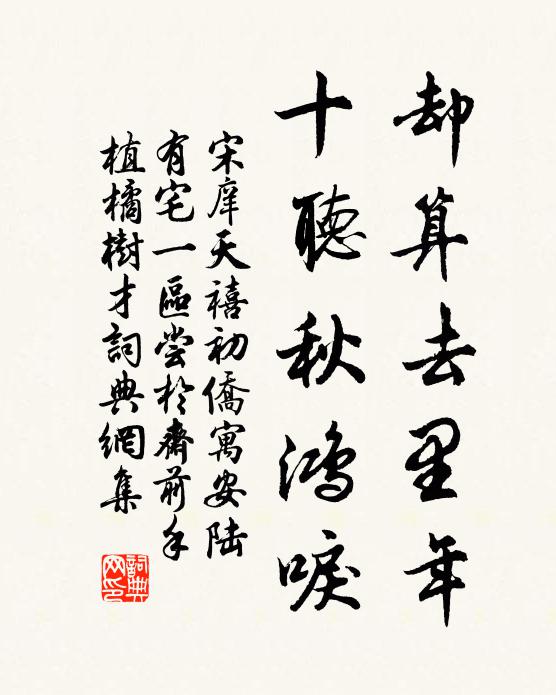 却算去里年
十聽秋鴻唳
宋庠天禧初僑寓安陸
有宅一區嘗於齋前手
植橘樹才詞典網集
詞典
網印